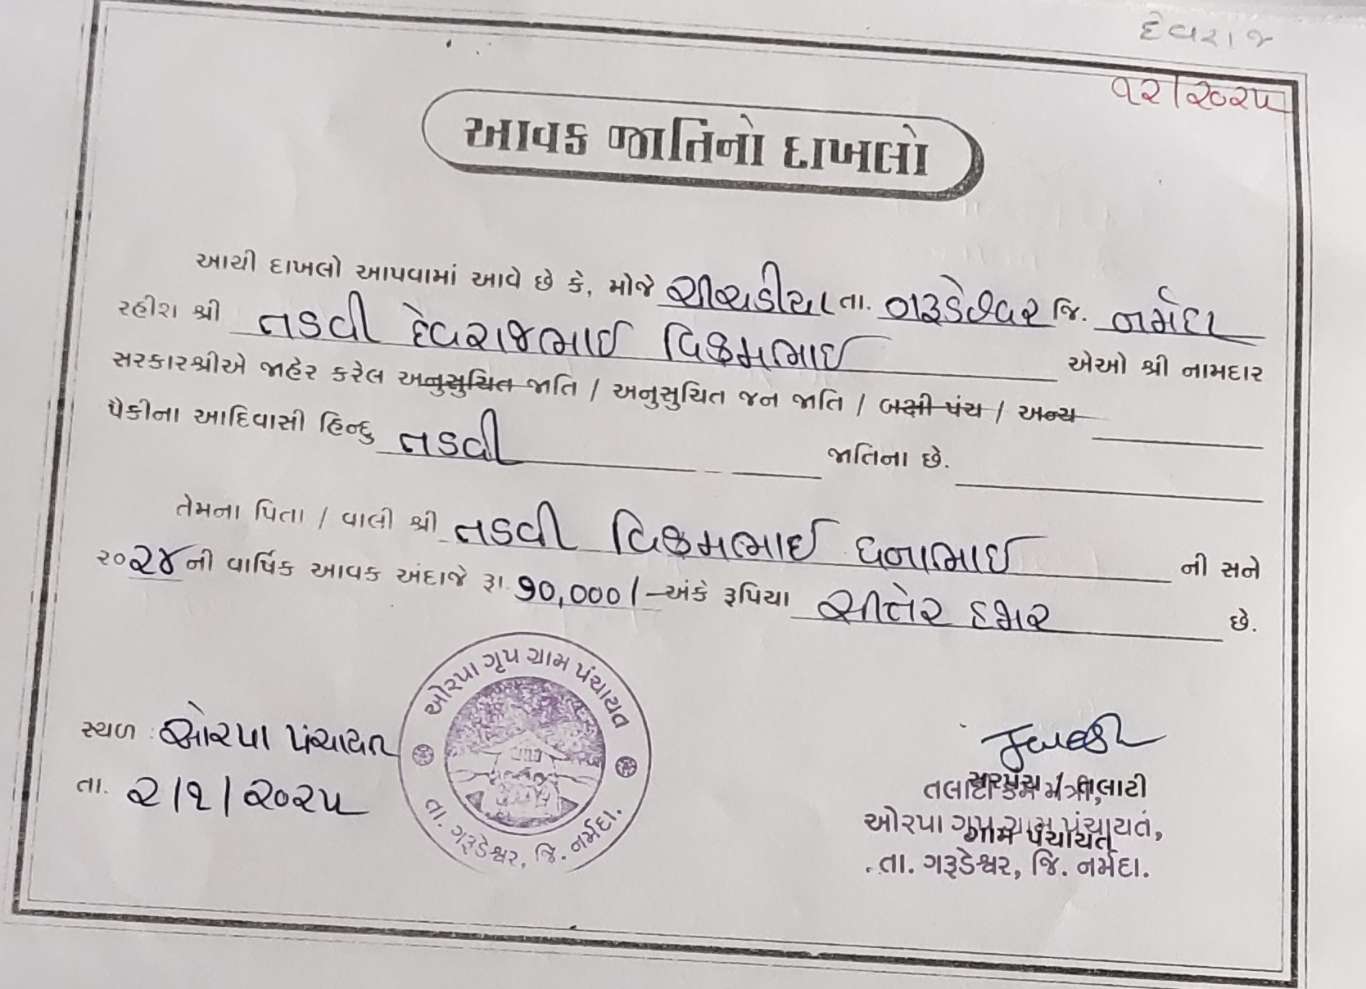 દેવરાજ
૧૨/૨૦૨૫
આવક જાતિનો દાખલો
આથી દાખલો આપવામાં આવે છે કે, મોજે તા. ગરૂડેશ્વર જિ. નર્મદા
રહીશ શ્રી તડવી દેવરાજભાઈ વિક્રમભાઈ એઓ શ્રી નામદાર
સરકારશ્રીએ જાહેર કરેલ અનુસુચિત જાતિ / અનુસુચિત જન જાતિ / બક્ષી પંચ / અન્ય
પૈકીના આદિવાસી હિન્દુ તડવી જાતિના છે.
તેમના પિતા / વાલી શ્રી તડવી વિક્રમભાઈ ધનાભાઈ ની સને
૨૦૨૪ ની વાર્ષિક આવક અંદાજે રૂા. ૭૦,૦૦૦/- અંકે રૂપિયા સીતેર હજાર છે.
ઓરપા ગૃપ ગ્રામ પંચાયત
તા. ગરૂડેશ્વર, જિ. નર્મદા.
સ્થળ : ઓરપા પંચાયત
તા. ૨/૧/૨૦૨૫
સરપંચ / તલાટી
તલાટી કમ મંત્રી,
ઓરપા ગૃપ ગ્રામ પંચાયત,
ગ્રામ પંચાયત
તા. ગરૂડેશ્વર, જિ. નર્મદા.